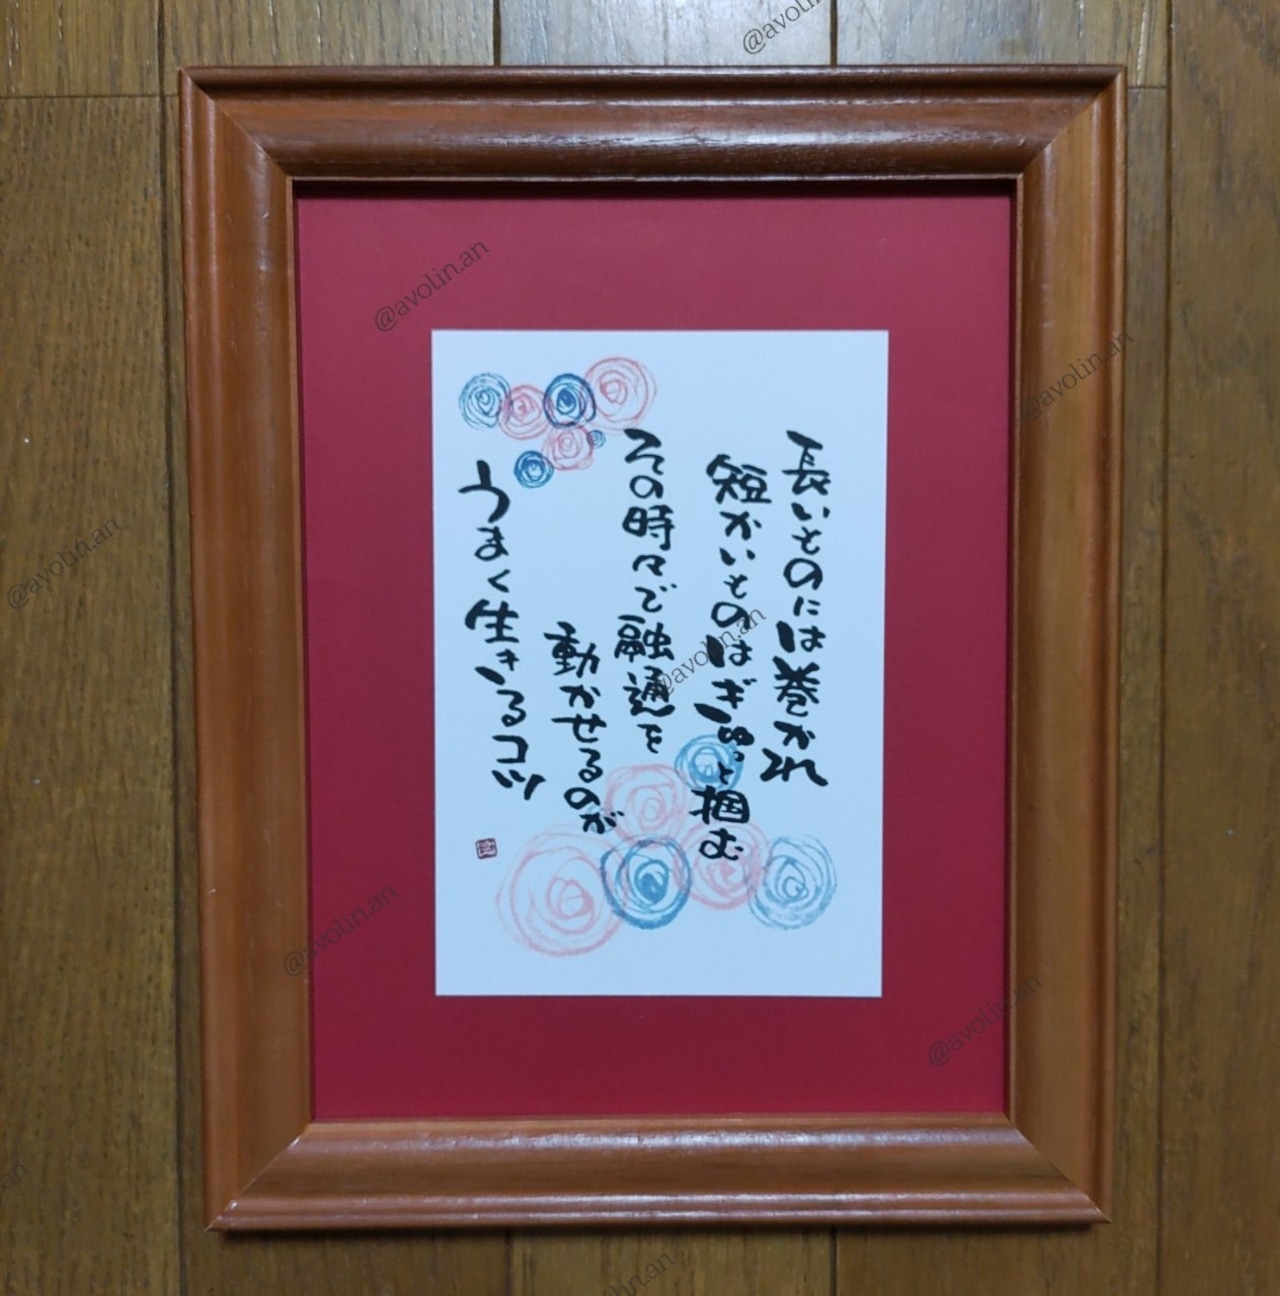 長いものには巻かれ
短かいものはぎゅっと掴む
その時々で融通を
動かせるのが
うまく生きるコツ
@avolin.an
@avolin.an
@avolin.an
@avolin.an
@avolin.an
@avolin.an
@avolin.an
@avolin.an